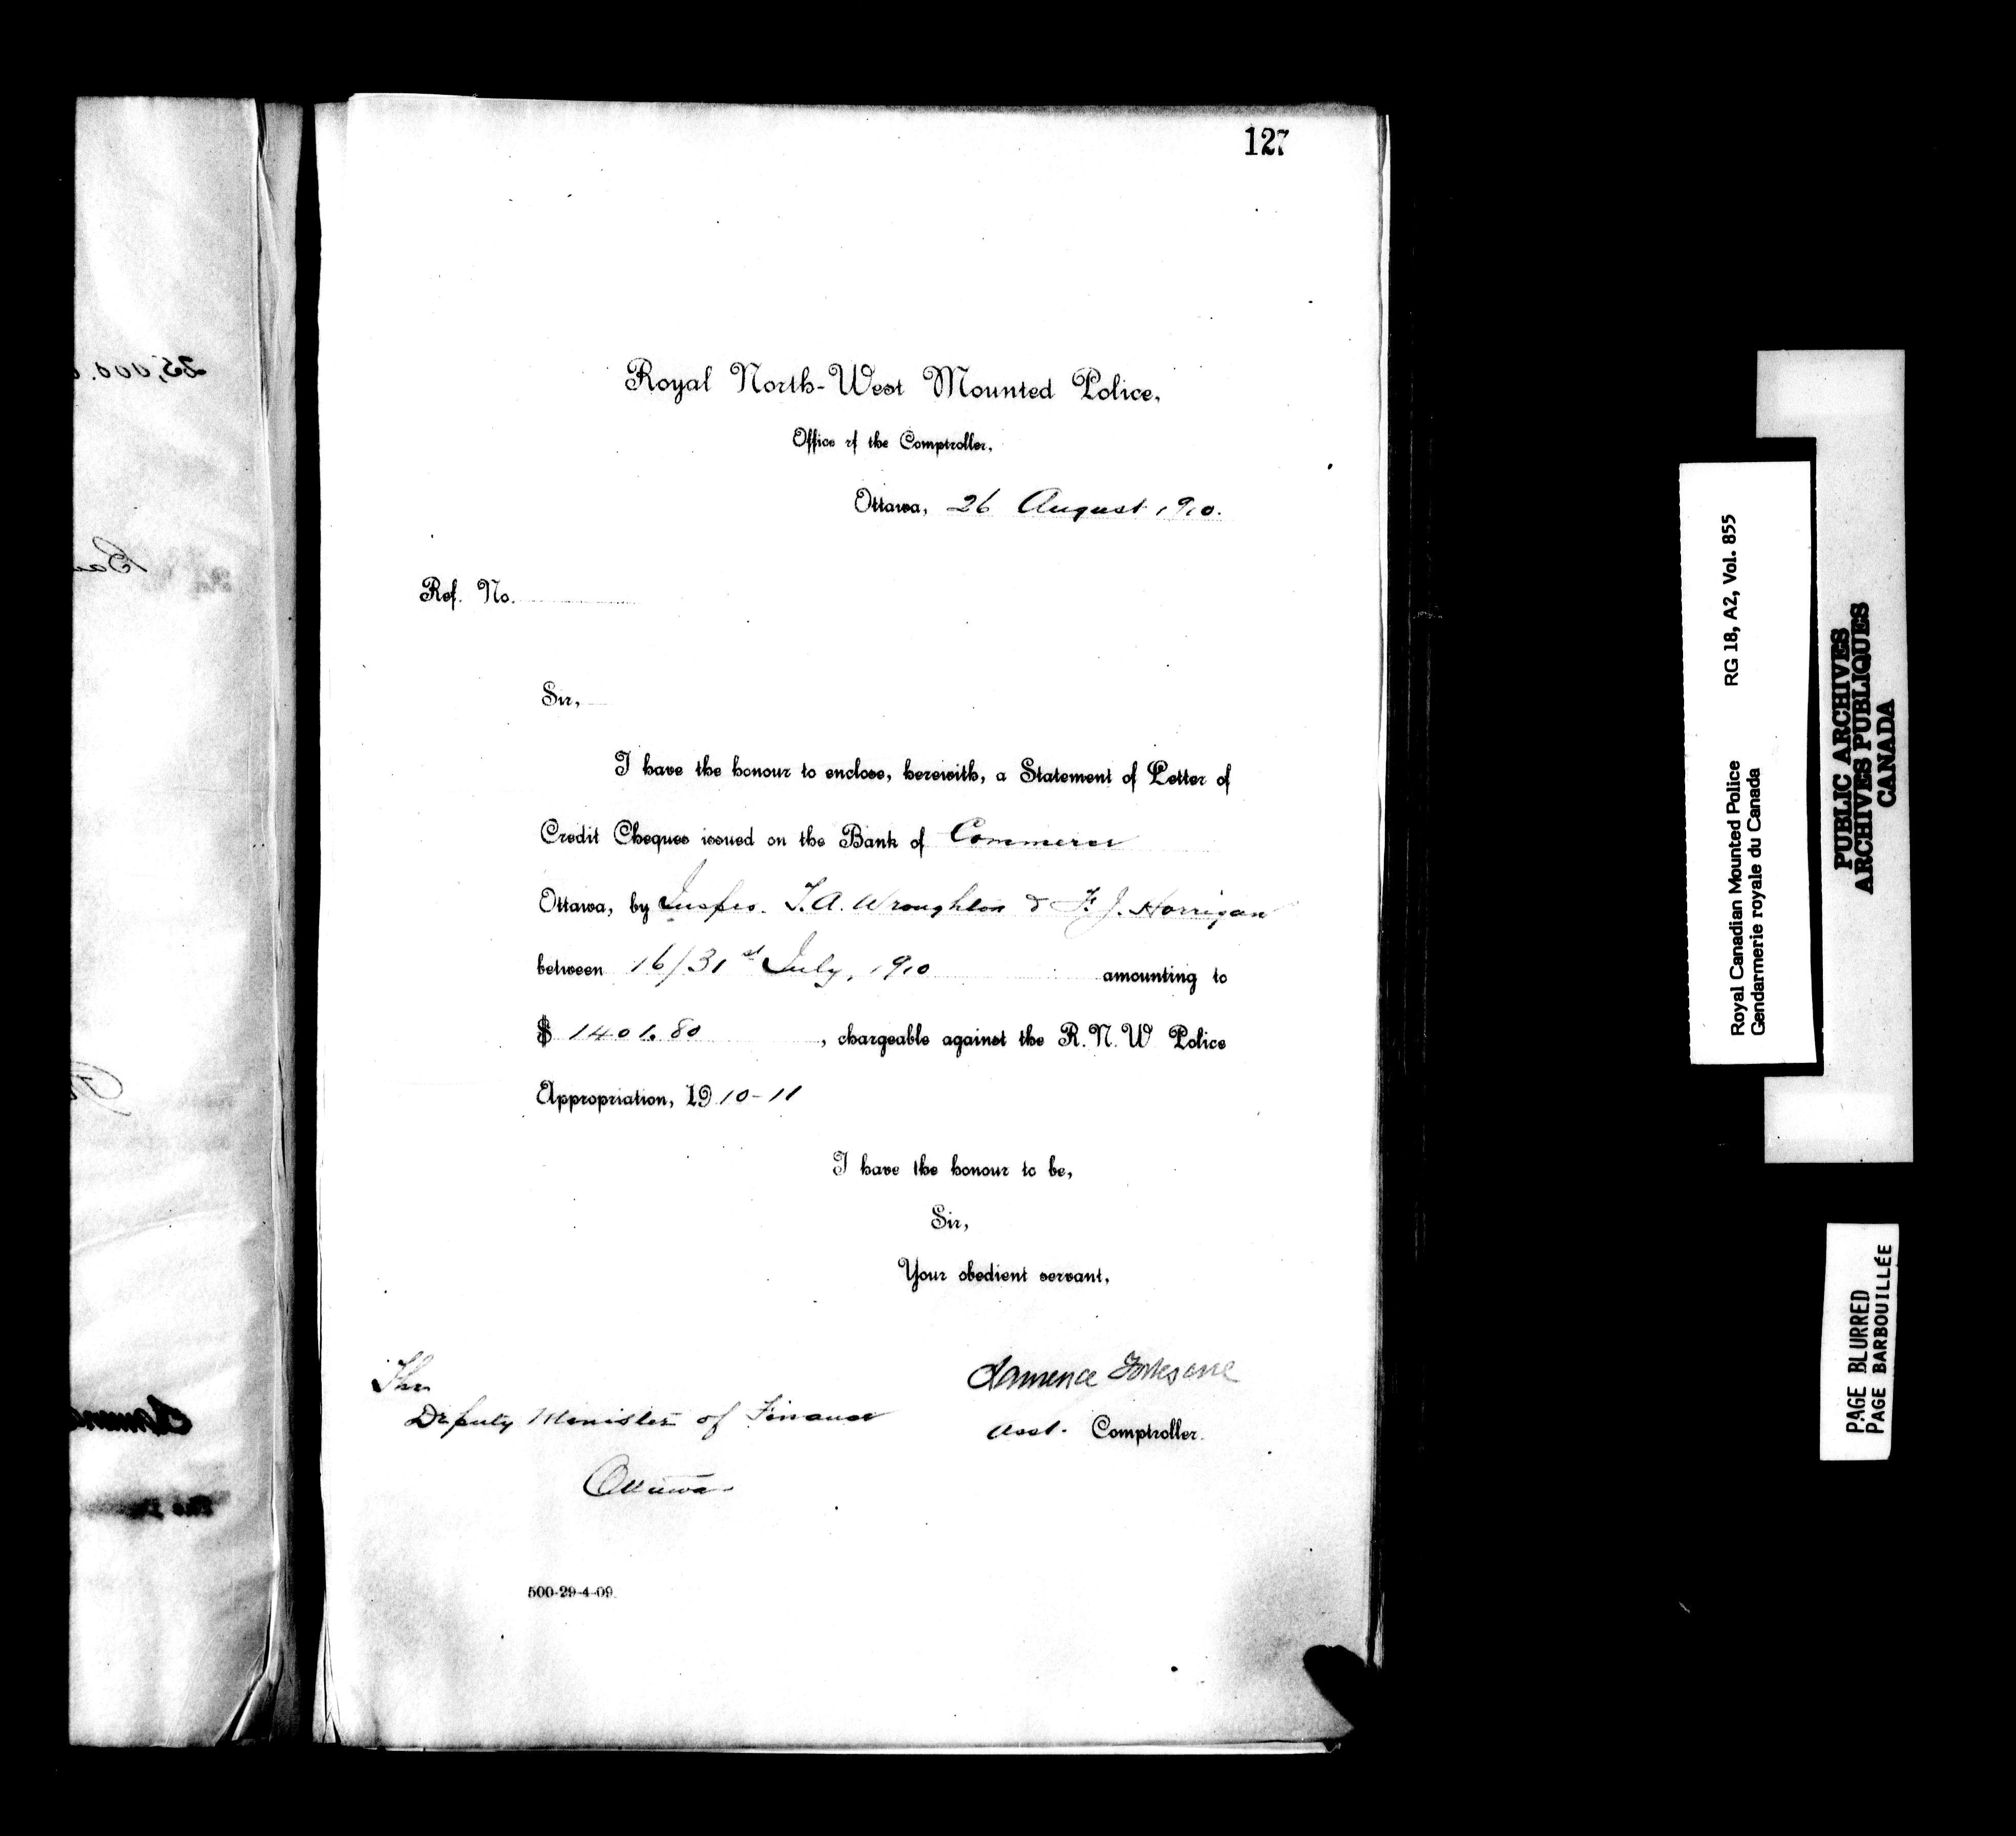 127
Royal North-West Mounted Police,
Office of the Comptroller,
Ottawa, 26 August 1910.
Ref. No.
Sir,
I have the honour to enclose, herewith, a Statement of Letter of
Credit Cheques issued on the Bank of Commerce
Ottawa, by Insprs. T.A. Wroughton & F. J. Horrigan
between 16/31st July, 1910 amounting to
$ 1401.80, chargeable against the R.N.W Police
Appropriation, 1910-11
I have the honour to be,
Sir,
Your obedient servant,
Clarence
Asst. Comptroller.
The
Deputy Minister of Finance
Ottawa
500-29-4-09.
Royal Canadian Mounted Police RG 18, A2, Vol. 855
Gendarmerie royale du Canada
PUBLIC ARCHIVES
ARCHIVES PUBLIQUES
CANADA
PAGE BLURRED
PAGE BARBOUILLÉE